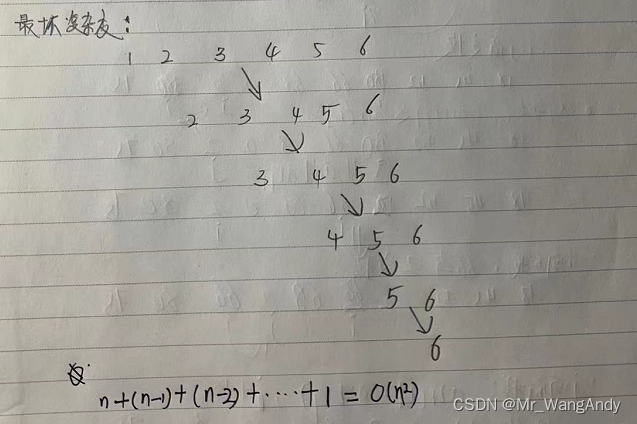 最坏复杂度:
1 2 3 4 5 6
2 3 4 5 6
3 4 5 6
4 5 6
5 6
6
n+(n-1)+(n-2)+····+1=O(n²)
CSDN @Mr_WangAndy